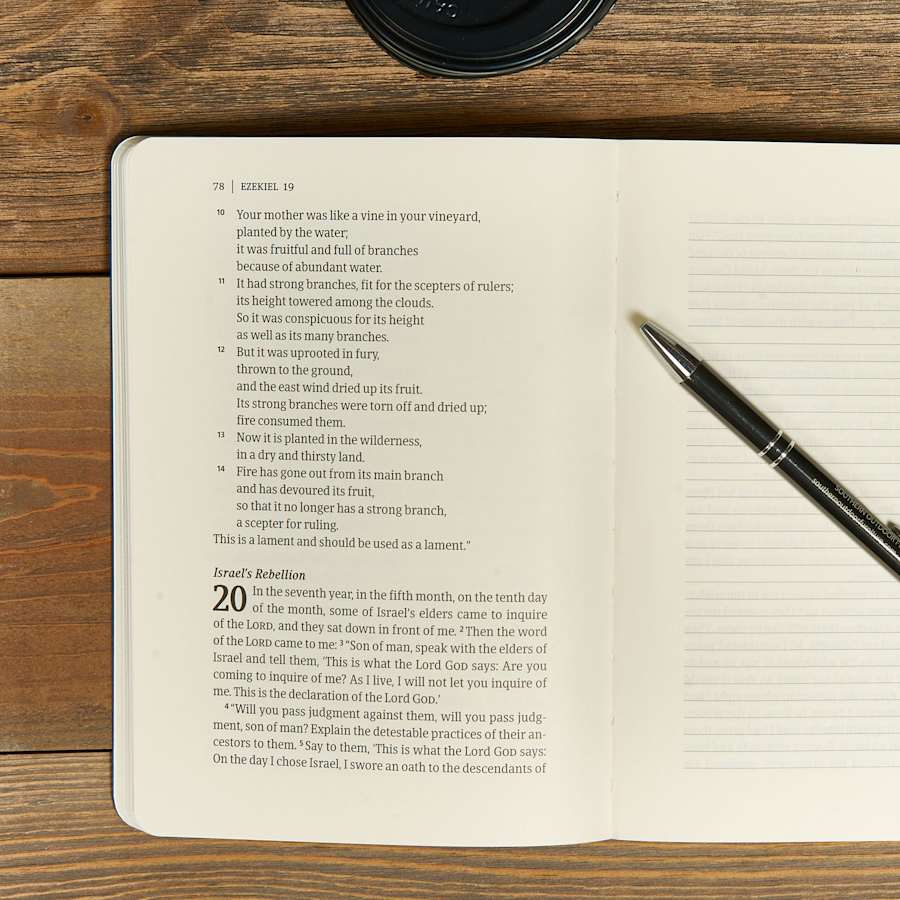 78 | EZEKIEL 19
10 Your mother was like a vine in your vineyard,
planted by the water;
it was fruitful and full of branches
because of abundant water.
11 It had strong branches, fit for the scepters of rulers;
its height towered among the clouds.
So it was conspicuous for its height
as well as its many branches.
12 But it was uprooted in fury,
thrown to the ground,
and the east wind dried up its fruit.
Its strong branches were torn off and dried up;
fire consumed them.
13 Now it is planted in the wilderness,
in a dry and thirsty land.
14 Fire has gone out from its main branch
and has devoured its fruit,
so that it no longer has a strong branch,
a scepter for ruling.
This is a lament and should be used as a lament.”
Israel’s Rebellion
20 In the seventh year, in the fifth month, on the tenth day
of the month, some of Israel’s elders came to inquire
of the LORD, and they sat down in front of me. 2 Then the word
of the LORD came to me: 3 “Son of man, speak with the elders of
Israel and tell them, ‘This is what the Lord GOD says: Are you
coming to inquire of me? As I live, I will not let you inquire of
me. This is the declaration of the Lord GOD.’
4 “Will you pass judgment against them, will you pass judg-
ment, son of man? Explain the detestable practices of their an-
cestors to them. 5 Say to them, ‘This is what the Lord GOD says:
On the day I chose Israel, I swore an oath to the descendants of
SOUTHERN OUTDOOR